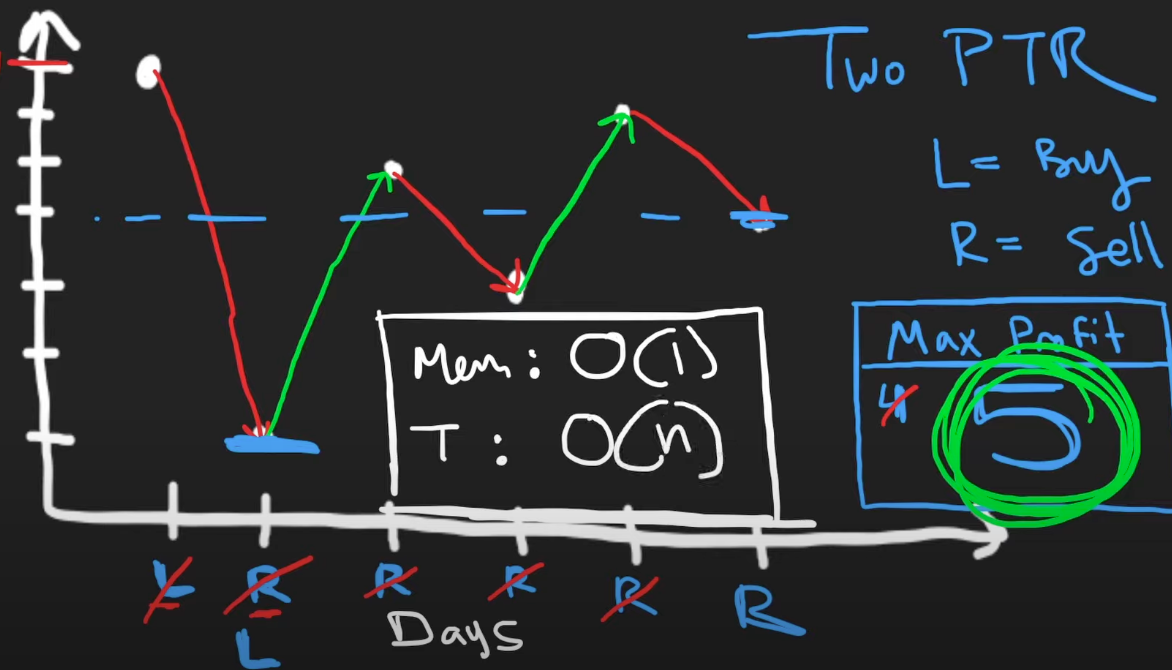 Two PTR
L= Buy
R= Sell
Max Profit
4 5
Mem: O(1)
T: O(n)
L R R R R R
L
Days